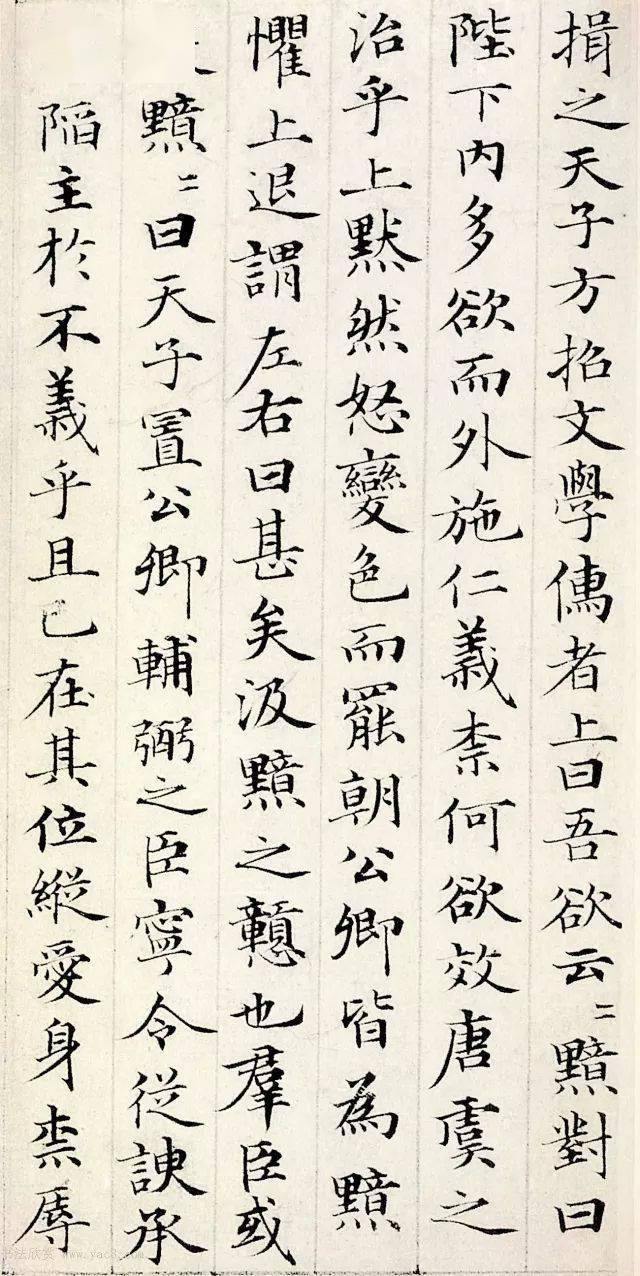 揖之天子方招文學儒者上曰吾欲云〻黯對曰
陛下內多欲而外施仁義柰何欲效唐虞之
治乎上默然怒變色而罷朝公卿皆為黯
懼上退謂左右曰甚矣汲黯之戇也羣臣或
黯〻曰天子置公卿輔弼之臣寧令從諛承
陷主於不義乎且已在其位縱愛身柰辱
书法欣赏 www.yac8.com